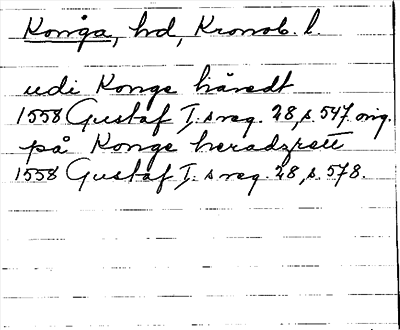 Konga, hd, Kronob. l.
udi Konge häredt
1558 Gustaf I:s reg. 28, s. 547. orig.
på Konge heradzrett
1558 Gustaf I:s reg. 28, s. 578.